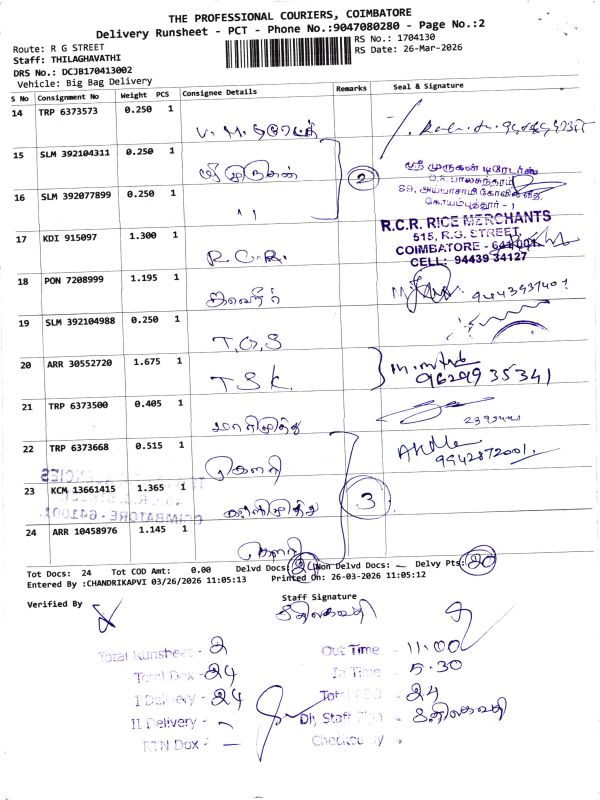 THE PROFESSIONAL COURIERS, COIMBATORE
Delivery Runsheet - PCT - Phone No.:9047080280 - Page No.:2
Route: R G STREET
Staff: THILAGHAVATHI
DRS No.: DCJB170413002
Vehicle: Big Bag Delivery
RS No.: 1704130
RS Date: 26-Mar-2026
S No Consignment No Weight PCS Consignee Details Remarks Seal & Signature
14 TRP 6373573 0.250 1
15 SLM 392104311 0.250 1 ஸ்ரீ முருகன்
16 SLM 392077899 0.250 1 ,,
2
ஸ்ரீ முருகன் டிரேடர்ஸ்
கோயம்புத்தூர் - 1
17 KDI 915097 1.300 1 R.C.R.
R.C.R. RICE MERCHANTS
515, R.G. STREET,
COIMBATORE - 641 001.
CELL: 94439 34127
18 PON 7208999 1.195 1
19 SLM 392104988 0.250 1 T.G.S
20 ARR 30552720 1.675 1 T S K.
9629935341
21 TRP 6373500 0.405 1 மாரிமுத்து
22 TRP 6373668 0.515 1 கௌரி
9942872001.
23 KCM 13661415 1.365 1
3
COIMBATORE - 641001.
24 ARR 10458976 1.145 1 கௌரி
Tot Docs: 24 Tot COD Amt: 0.00 Delvd Docs: Non Delvd Docs: — Delvy Pts: 20
Entered By :CHANDRIKAPVI 03/26/2026 11:05:13 Printed On: 26-03-2026 11:05:12
Verified By
Staff Signature
திலகவதி
Total Runsheet - 2
Out Time - 11:00
Total Dox - 24
In Time - 5.30
I Delivery - 24
24
II Delivery -
Dly Staff Sign - திலகவதி
RTN Dox - —
Checked By